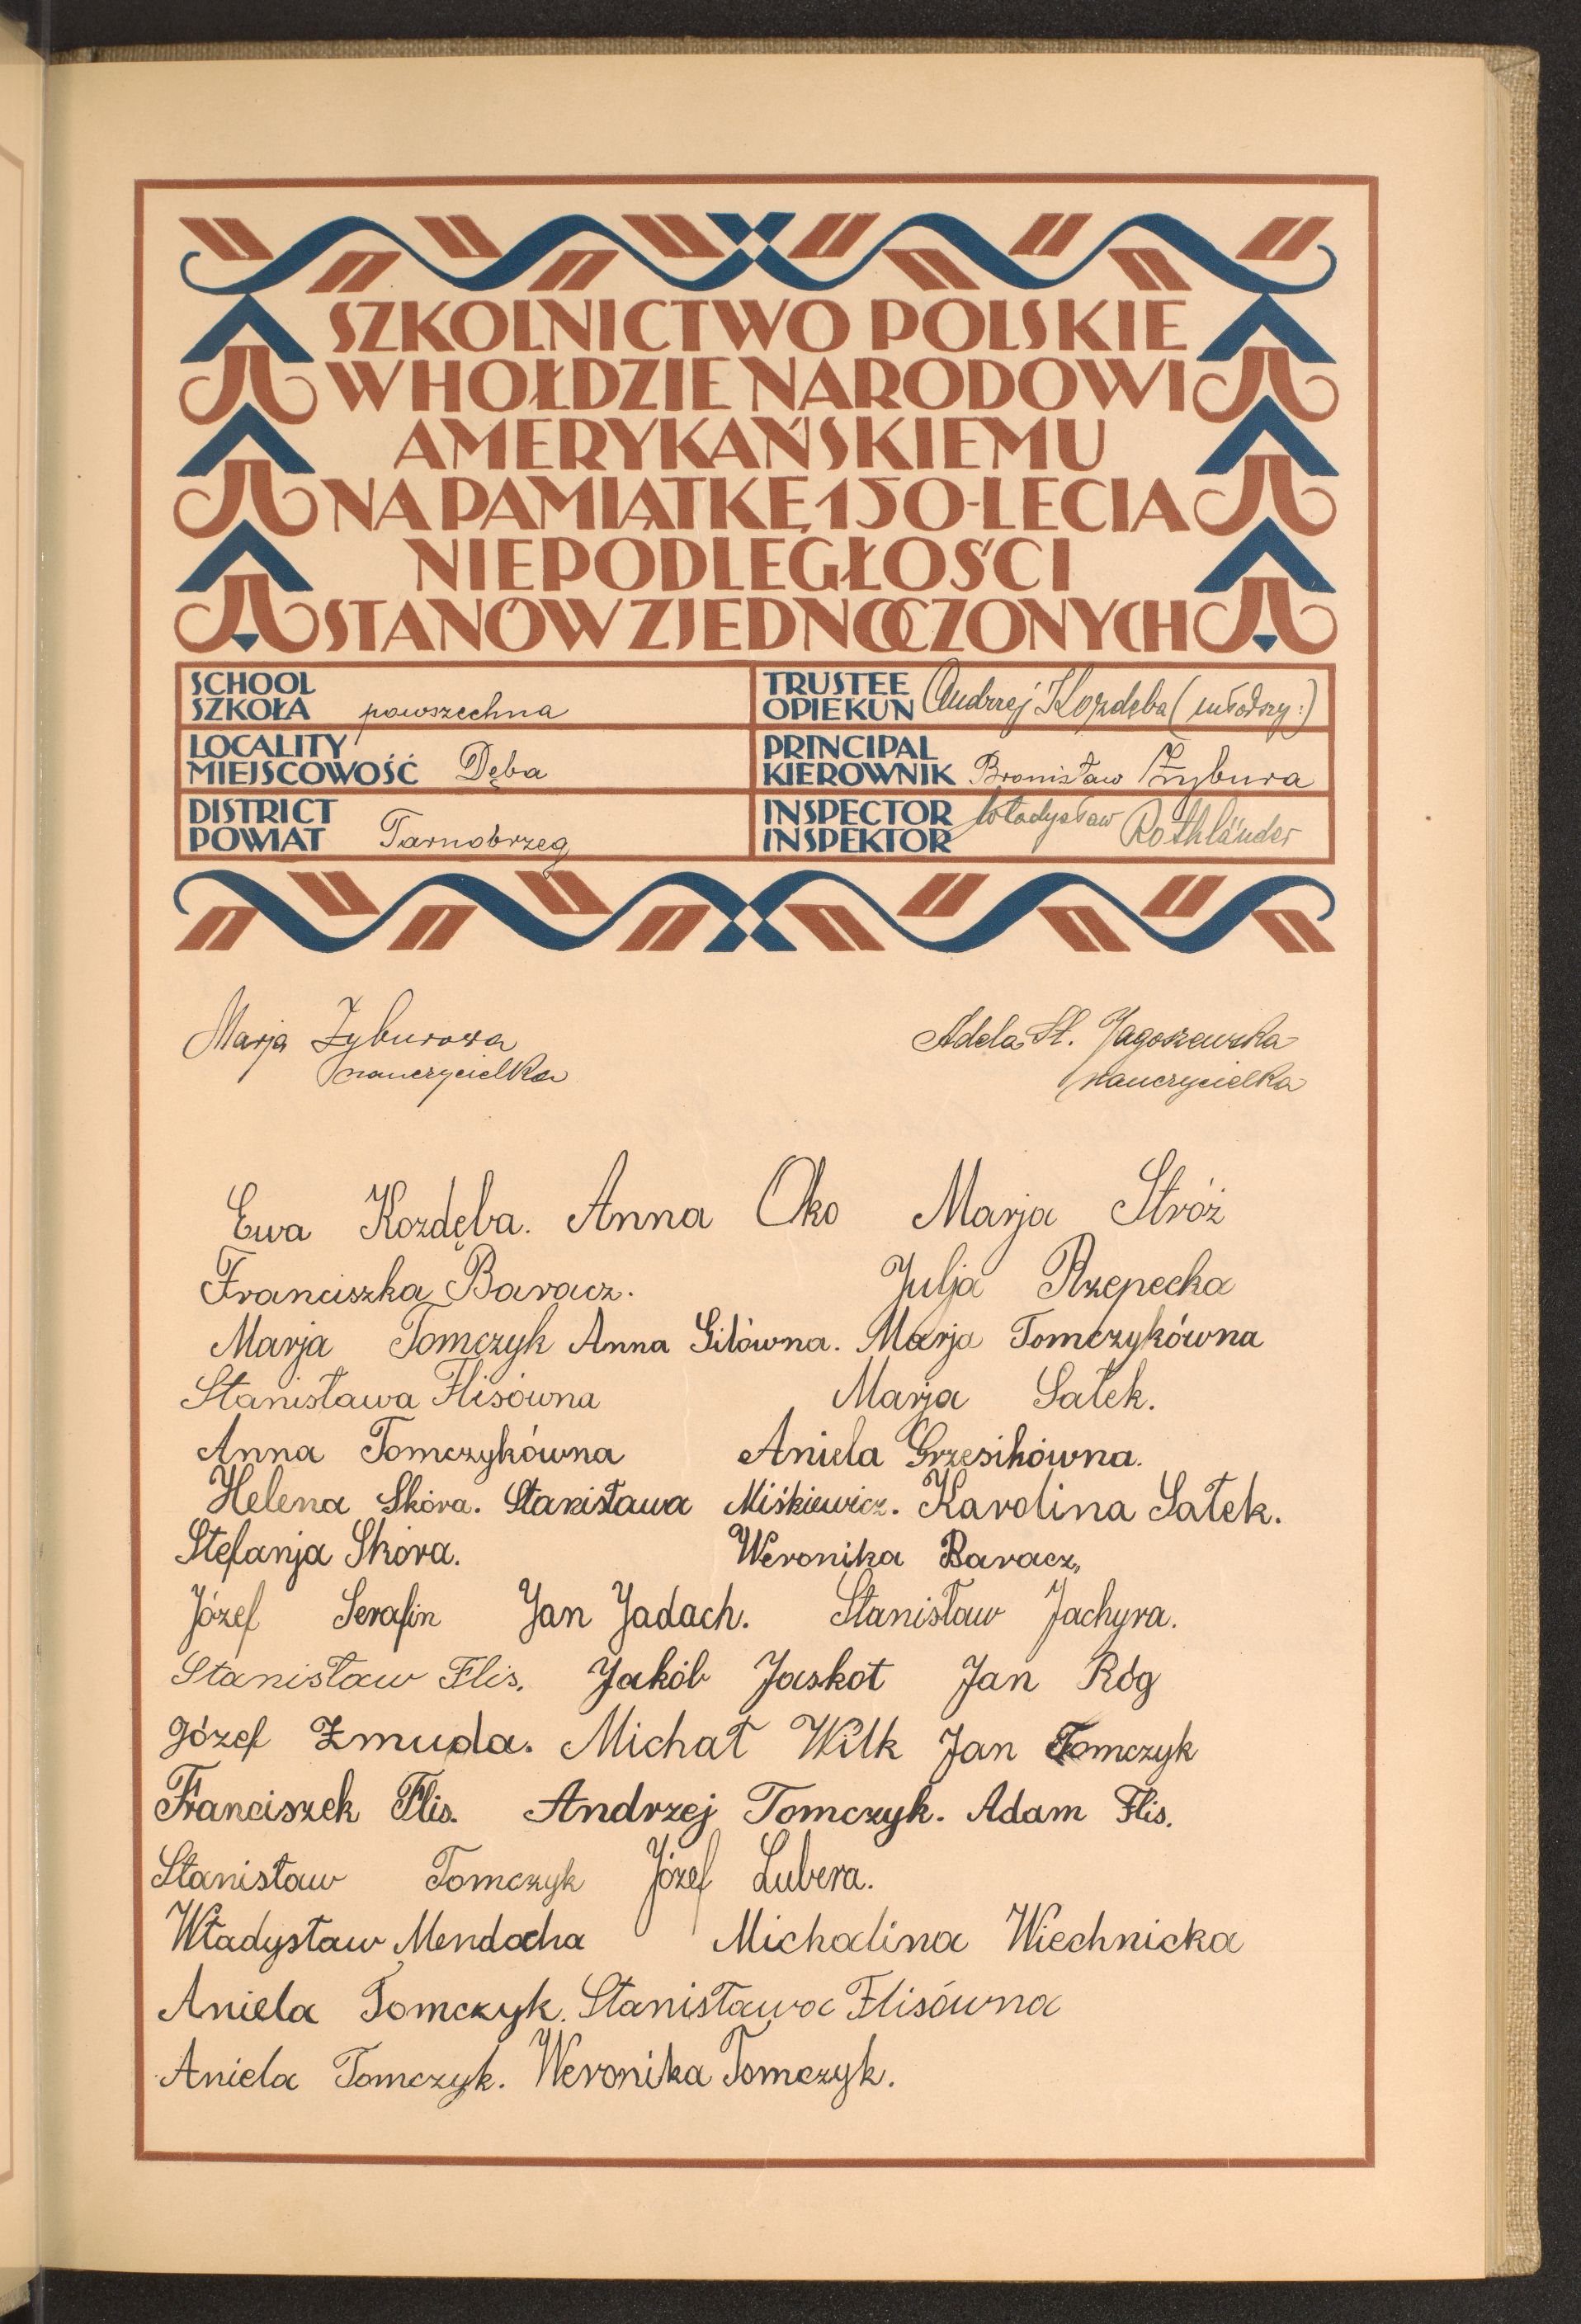 SZKOLNICTWO POLSKIE
W HOŁDZIE NARODOWI
AMERYKAŃSKIEMU
NA PAMIĄTKĘ 150-LECIA
NIEPODLEGŁOŚCI
STANÓW ZJEDNOCZONYCH
SCHOOL
SZKOŁA powszechna
TRUSTEE
OPIEKUN Andrzej Kozdęba (młodszy:)
LOCALITY
MIEJSCOWOŚĆ Dęba
PRINCIPAL
KIEROWNIK Bronisław Żybura
DISTRICT
POWIAT Tarnobrzeg
INSPECTOR Władysław Rothländer
INSPEKTOR
Marja Żyburowa
nauczycielka
Adela St. Jagoszewska
nauczycielka
Ewa Kozdęba. Anna Oko Marja Stróż
Franciszka Baracz. Julja Rzepecka
Marja Tomczyk Anna Gilówna. Marja Tomczykówna
Stanisława Flisówna Marja Sałek.
Anna Tomczykówna Aniela Grzesikówna.
Helena Skóra. Stanisława Miśkiewicz. Karolina Sałek.
Stefanja Skóra. Weronika Baracz,
Józef Serafin Jan Jadach. Stanisław Jachyra.
Stanisław Flis. Jakób Jaskot Jan Róg
Józef Żmuda. Michał Wilk Jan Tomczyk
Franciszek Flis. Andrzej Tomczyk. Adam Flis.
Stanisław Tomczyk Józef Lubera.
Władysław Mendocha Michalina Wiechnicka
Aniela Tomczyk. Stanisława Flisówna
Aniela Tomczyk. Weronika Tomczyk.